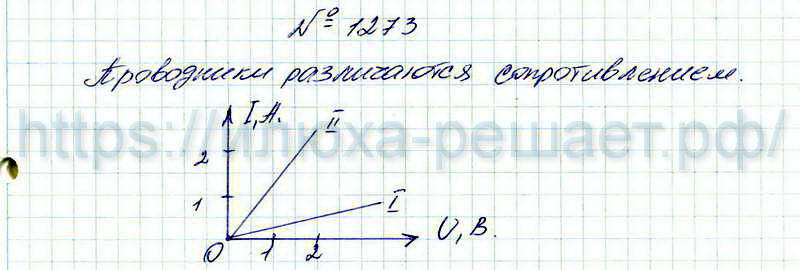 № 1273
Проводники различаются сопротивлением.
I, А.
II
https://илюха-решает.рф/
2
1
I
U, В.
0 1 2